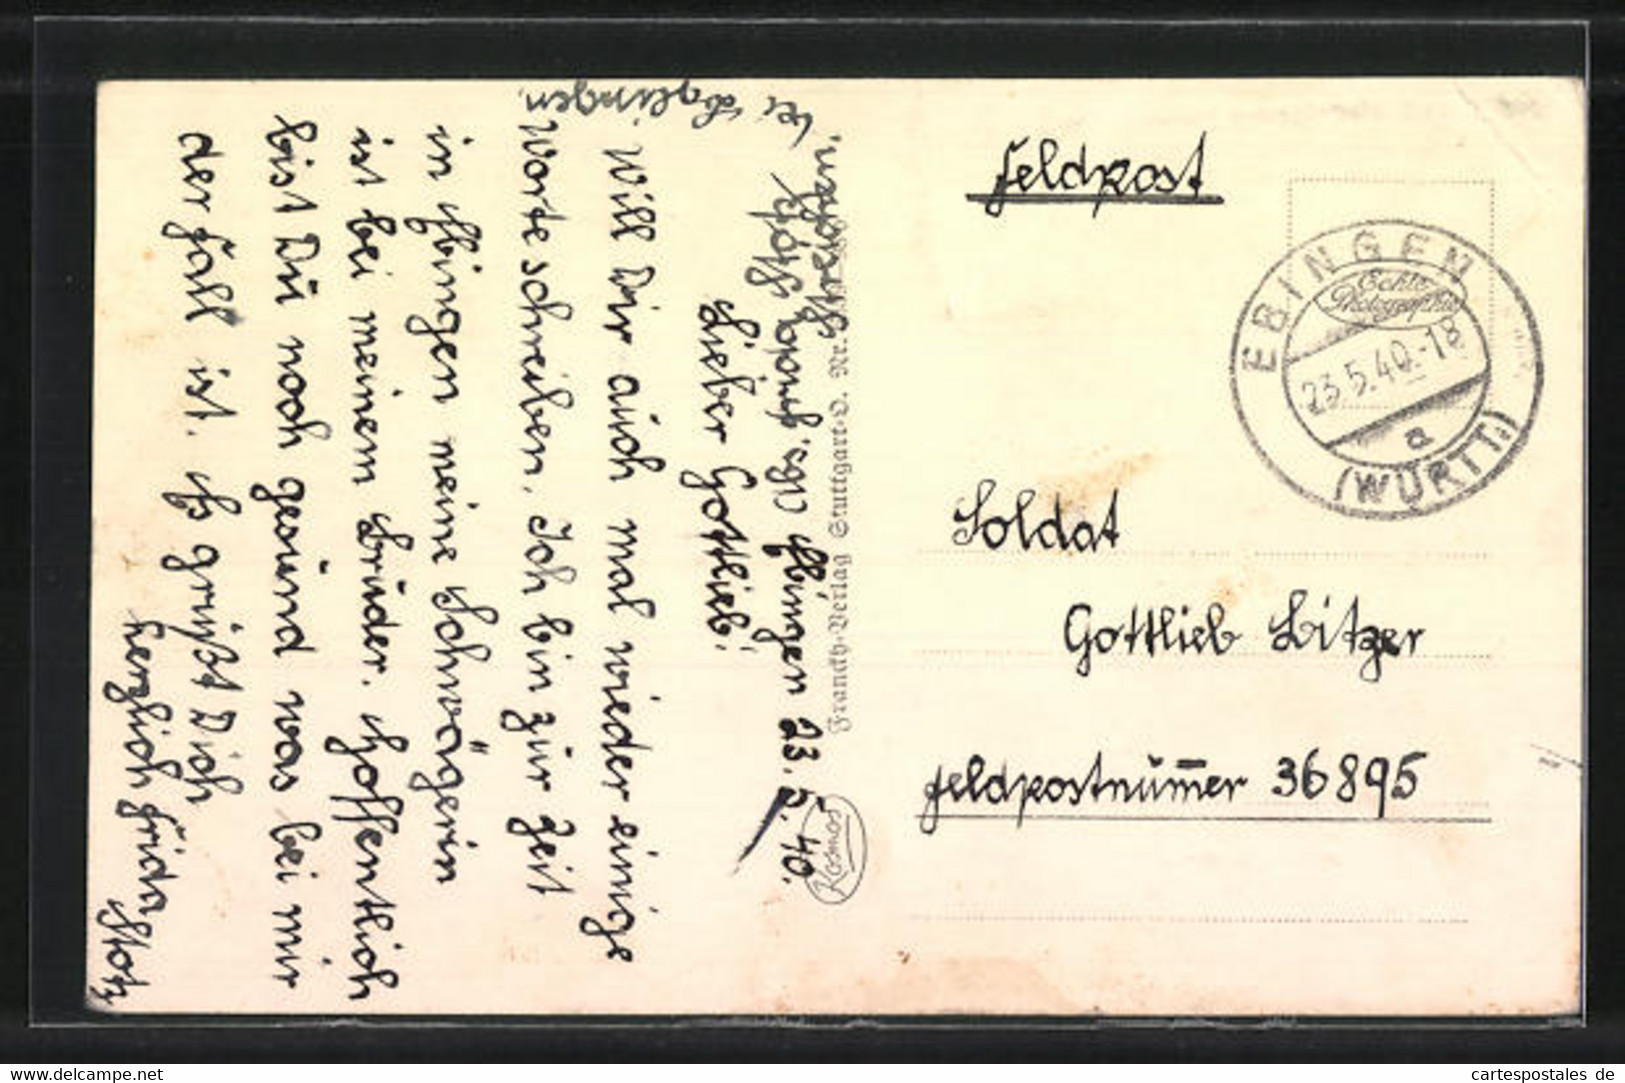 Ebingen 23. 5. 40.
Lieber Gottlieb!
Will Dir auch mal wieder einige
Worte schreiben. Ich bin zur Zeit
in Ebingen meine Schwägerin
ist bei meinem Bruder. Hoffentlich
bist Du noch gesund was bei mir
der Fall ist. Es grüßt Dich
herzlich Frida
Stotz
bei
Franckh-Verlag Stuttgart-O. Nr.
Kosmos
Feldpost
Echte
Photographie
EBINGEN
23.5.40.-18
a
(WÜRTT.)
Soldat
Gottlieb Bitzer
Feldpostnum̅er 36895
www.cartespostales.de
cartespostales de